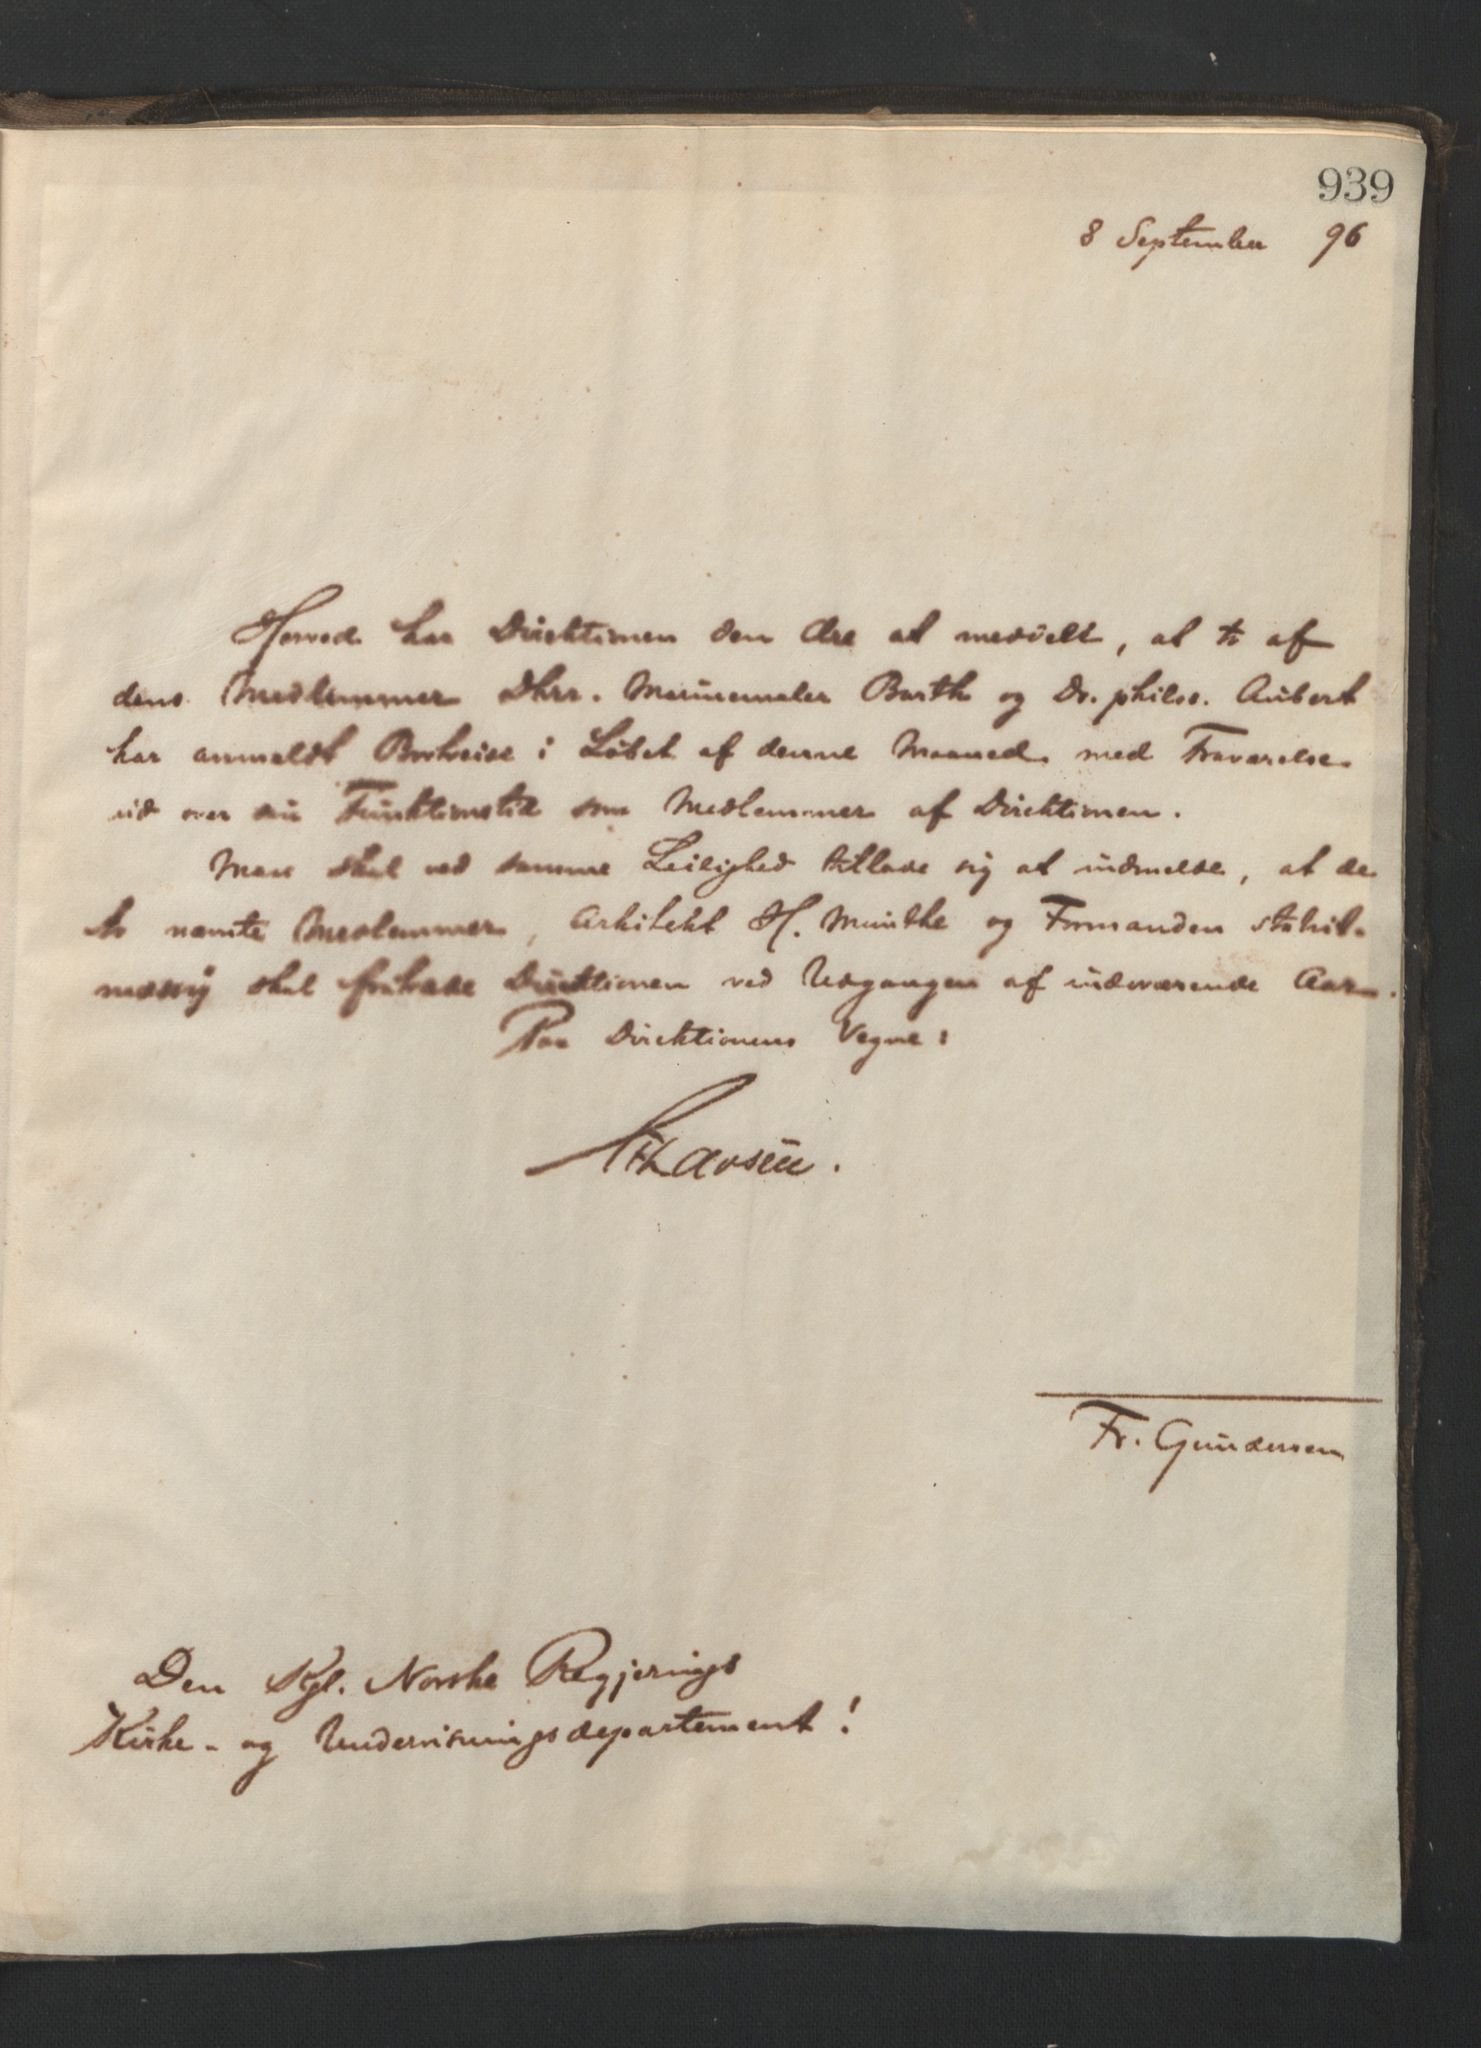 939
8 September 96
Herved har Direktionen den Ære at meddele, at to af
dens Medlemmer Dhrr. Marinemaler Barth og Dr. philos. Aubert
har anmeldt Bortreise i Løbet af denne Maaned med Fraværelse
ud over sin Funktionstid som Medlemmer af Direktionen.
Man skal ved samme Leilighed tillade sig at indmelde, at de
to nævnte Medlemmer, Arkitekt H. Munthe og Formanden statut-
mæssig skal fratræde Direktionen ved Udgangen af indeværende Aar.
Paa Direktionens Vegne:
Fr. Gundersen
Den Kgl. Norske Regjerings
Kirke- og Undervisningsdepartement!